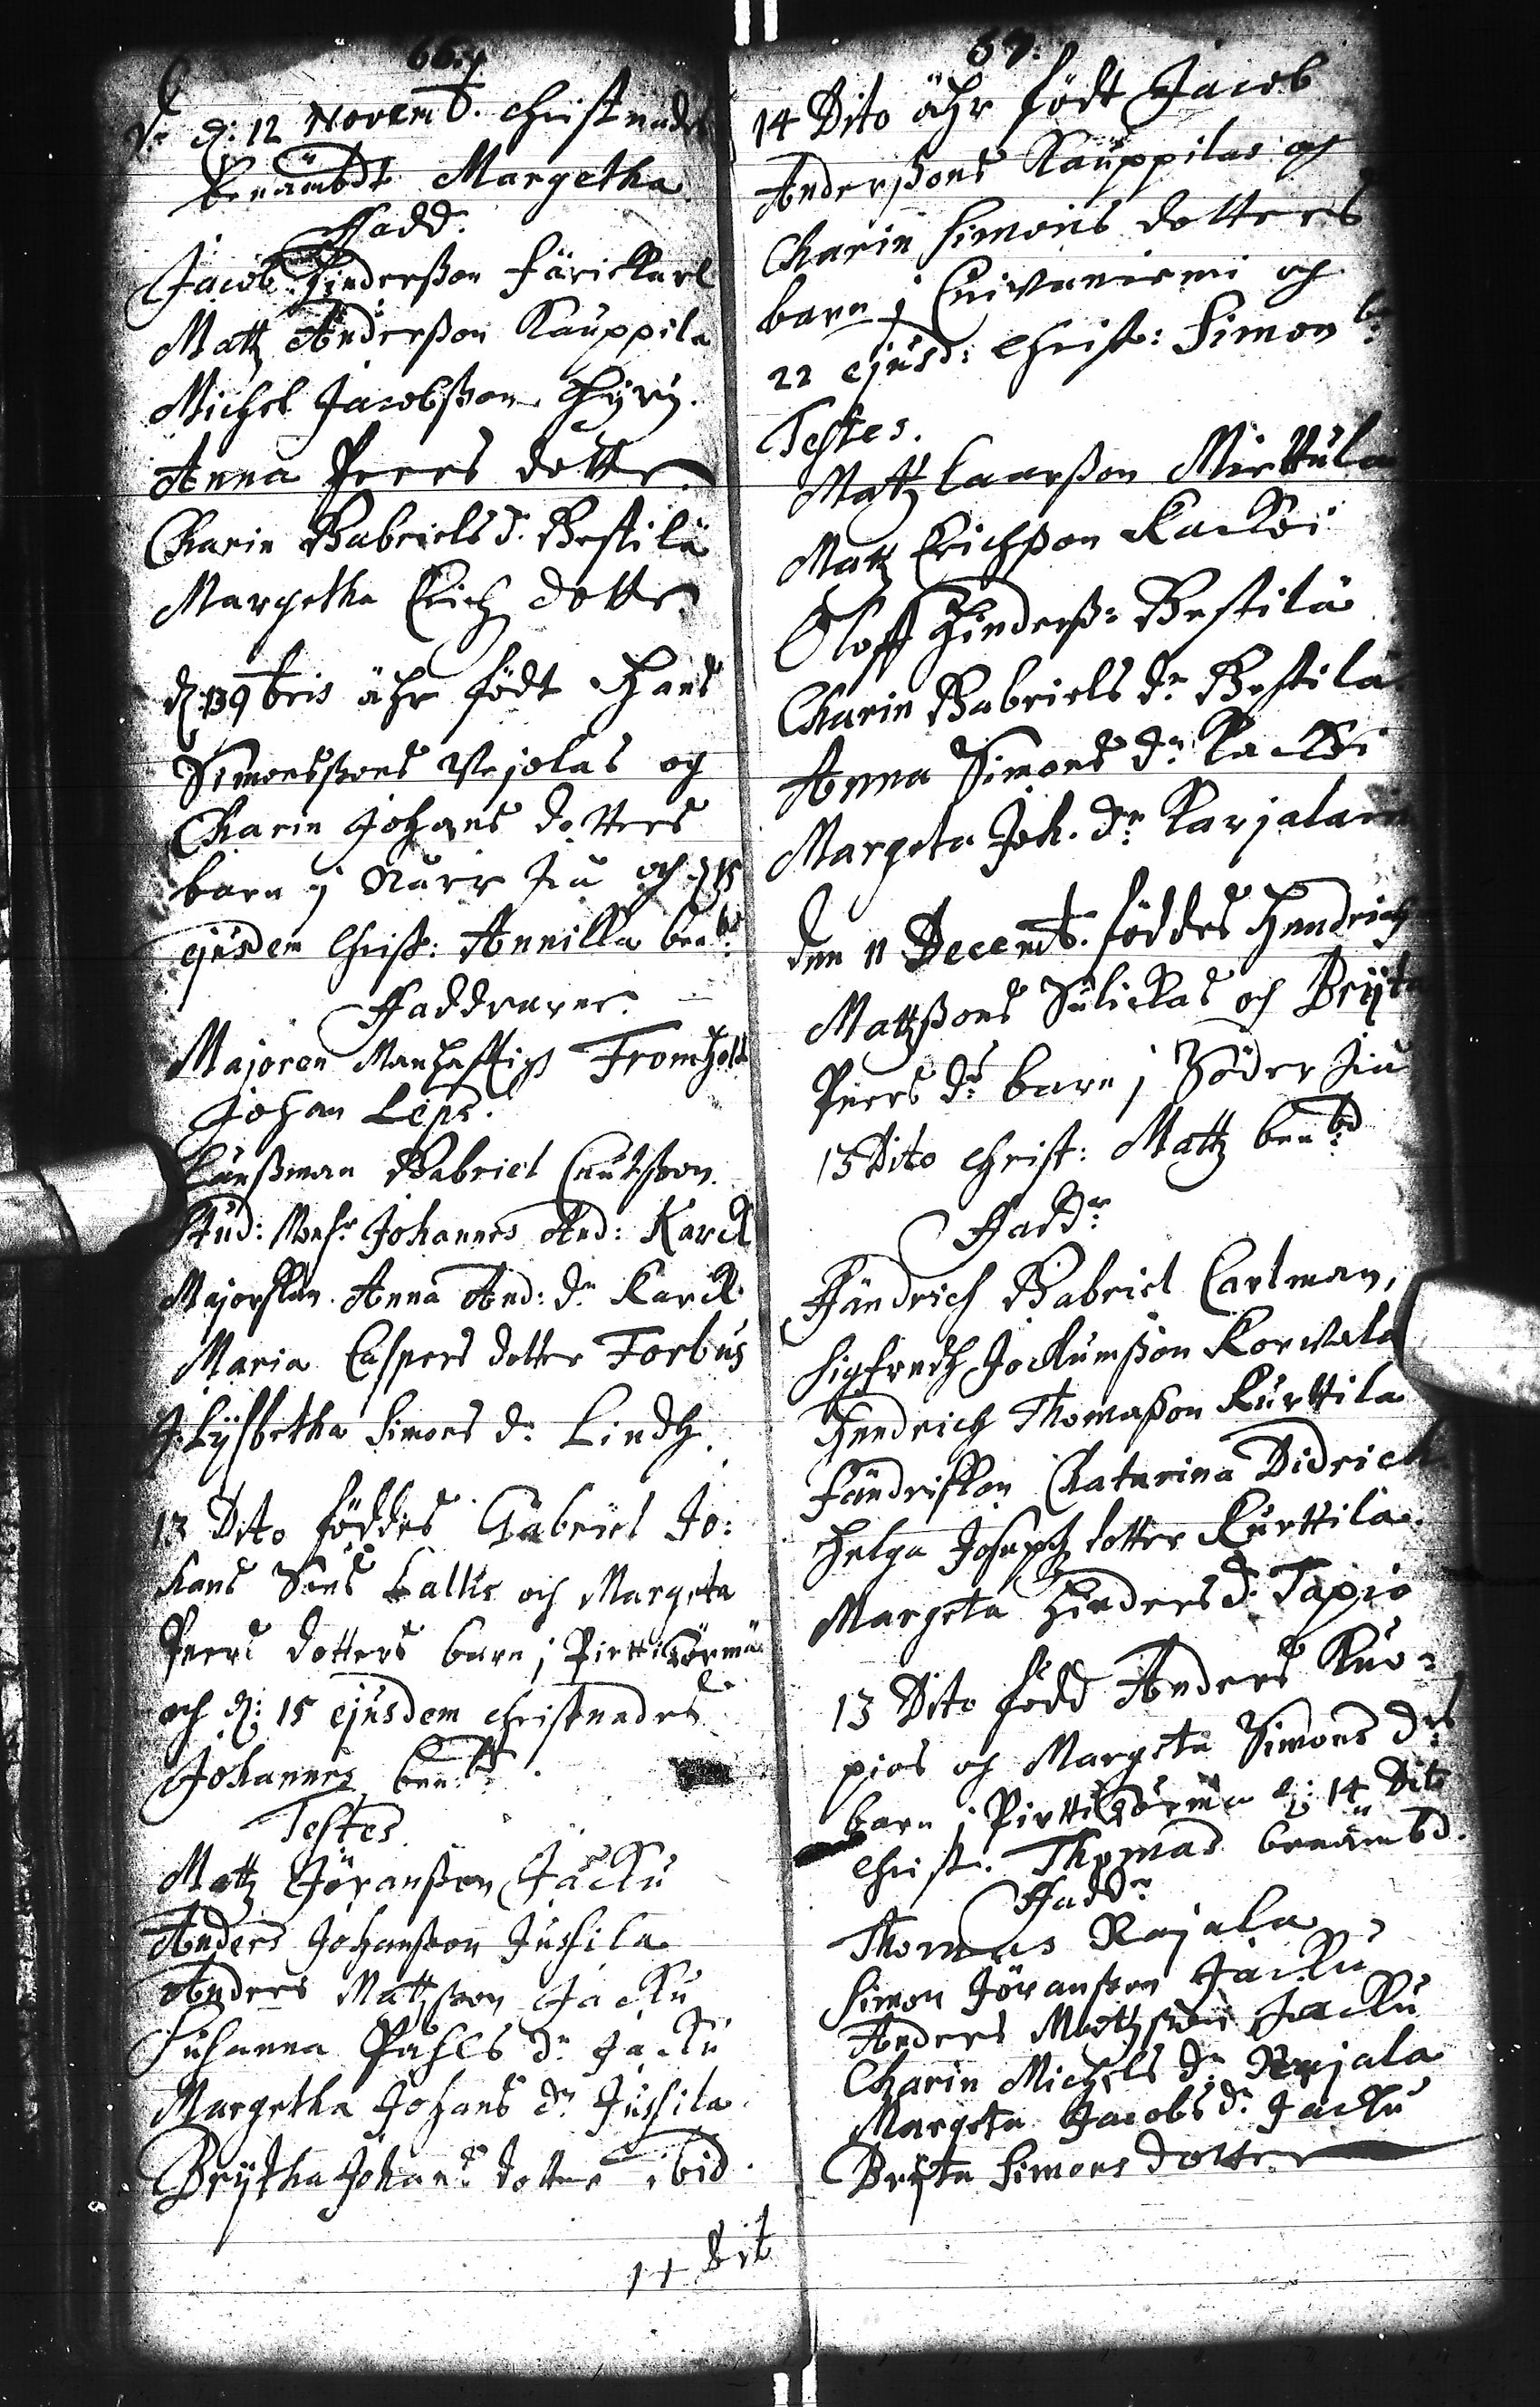 66.
d: 12 Novemb. christnades
benämbdt Margetha
Fadd.
Jacob Hinderßon Färiekarl
Matz Anderßon Kauppila
Michel Jacobßon Hyry.
Anna Peers dotter.
Charin Gabriels d. Bestilä
Margetha Erich dotter
d. 13 9bris ähr födt Hans
Simonssons Vejolas og
Charin Johans dotters
barn j Nurr Jiu och d 15
ejusdem Christ: Annikka ben.
Faddrarne.
Majoren Manhafftigh Fromholt
Johan Leps.
Länßman Gabriel Cnutsson.
Stud: Johannes And: Karck
Majorskan. Anna And: dr Karck.
Maria Caspers dotter Forbus
J. Lysbetha Simons dr Lindh.
13 Dito föddes Gabriel Jo:
hans Sons Lallis och Margeta
Peers dotters barn j Pirttikörmä
och d: 15 ejusdem christnades
Johannes ben:bd
Testes
Matz Jöranßon Jacku
Anders Johansson Jussila
Anders Matzson Jacku
Susanna Påhls dr Jacku
Margetha Johans dr Jussila.
Brytha Johans dotter ibid.
14 Dit
67.
14 Dito ähr födt Jacob
Anderßons Kauppilas och
Charin Simons dotters
barn j Cuivaniemi och
22 ejusd: christ: Simon b.
Testes.
Matz Laarßon Mirttula
Matz Erichßon Kacko
Oloff Hinderß: Bestilä
Charin Gabriels dr Bestilä
Anna Simons dr Kacko
Margeta Joh. dr Karjalain
den 11 Decemb. föddes Hendrich
Matzßons Sulickas och Bryta
Peers dr barn j Söder Jiu
13 Dito christ: Matz benbd
Faddr
Fändrich Gabriel Cartman,
Sigfredh Jockumßon Korwala
Hendrich Thomaßon Kurttila
Fändriskan Chatarina Didrich
Helga Josephz dotter Kurttila.
Margeta Hinders d. Tapio
13 Dito född Anders Kuo=
pios och Margeta Simons drs
barn j Pirttikörmä d: 14 Dito
christ. Thomas benämbd.
Faddr
Thomas Rajala
Simon Jöranßon Jacku
Anders Matzson Jacku
Charin Michels dr Rajala
Margeta Jacobs dr Jacku
Bryta Simons dotter